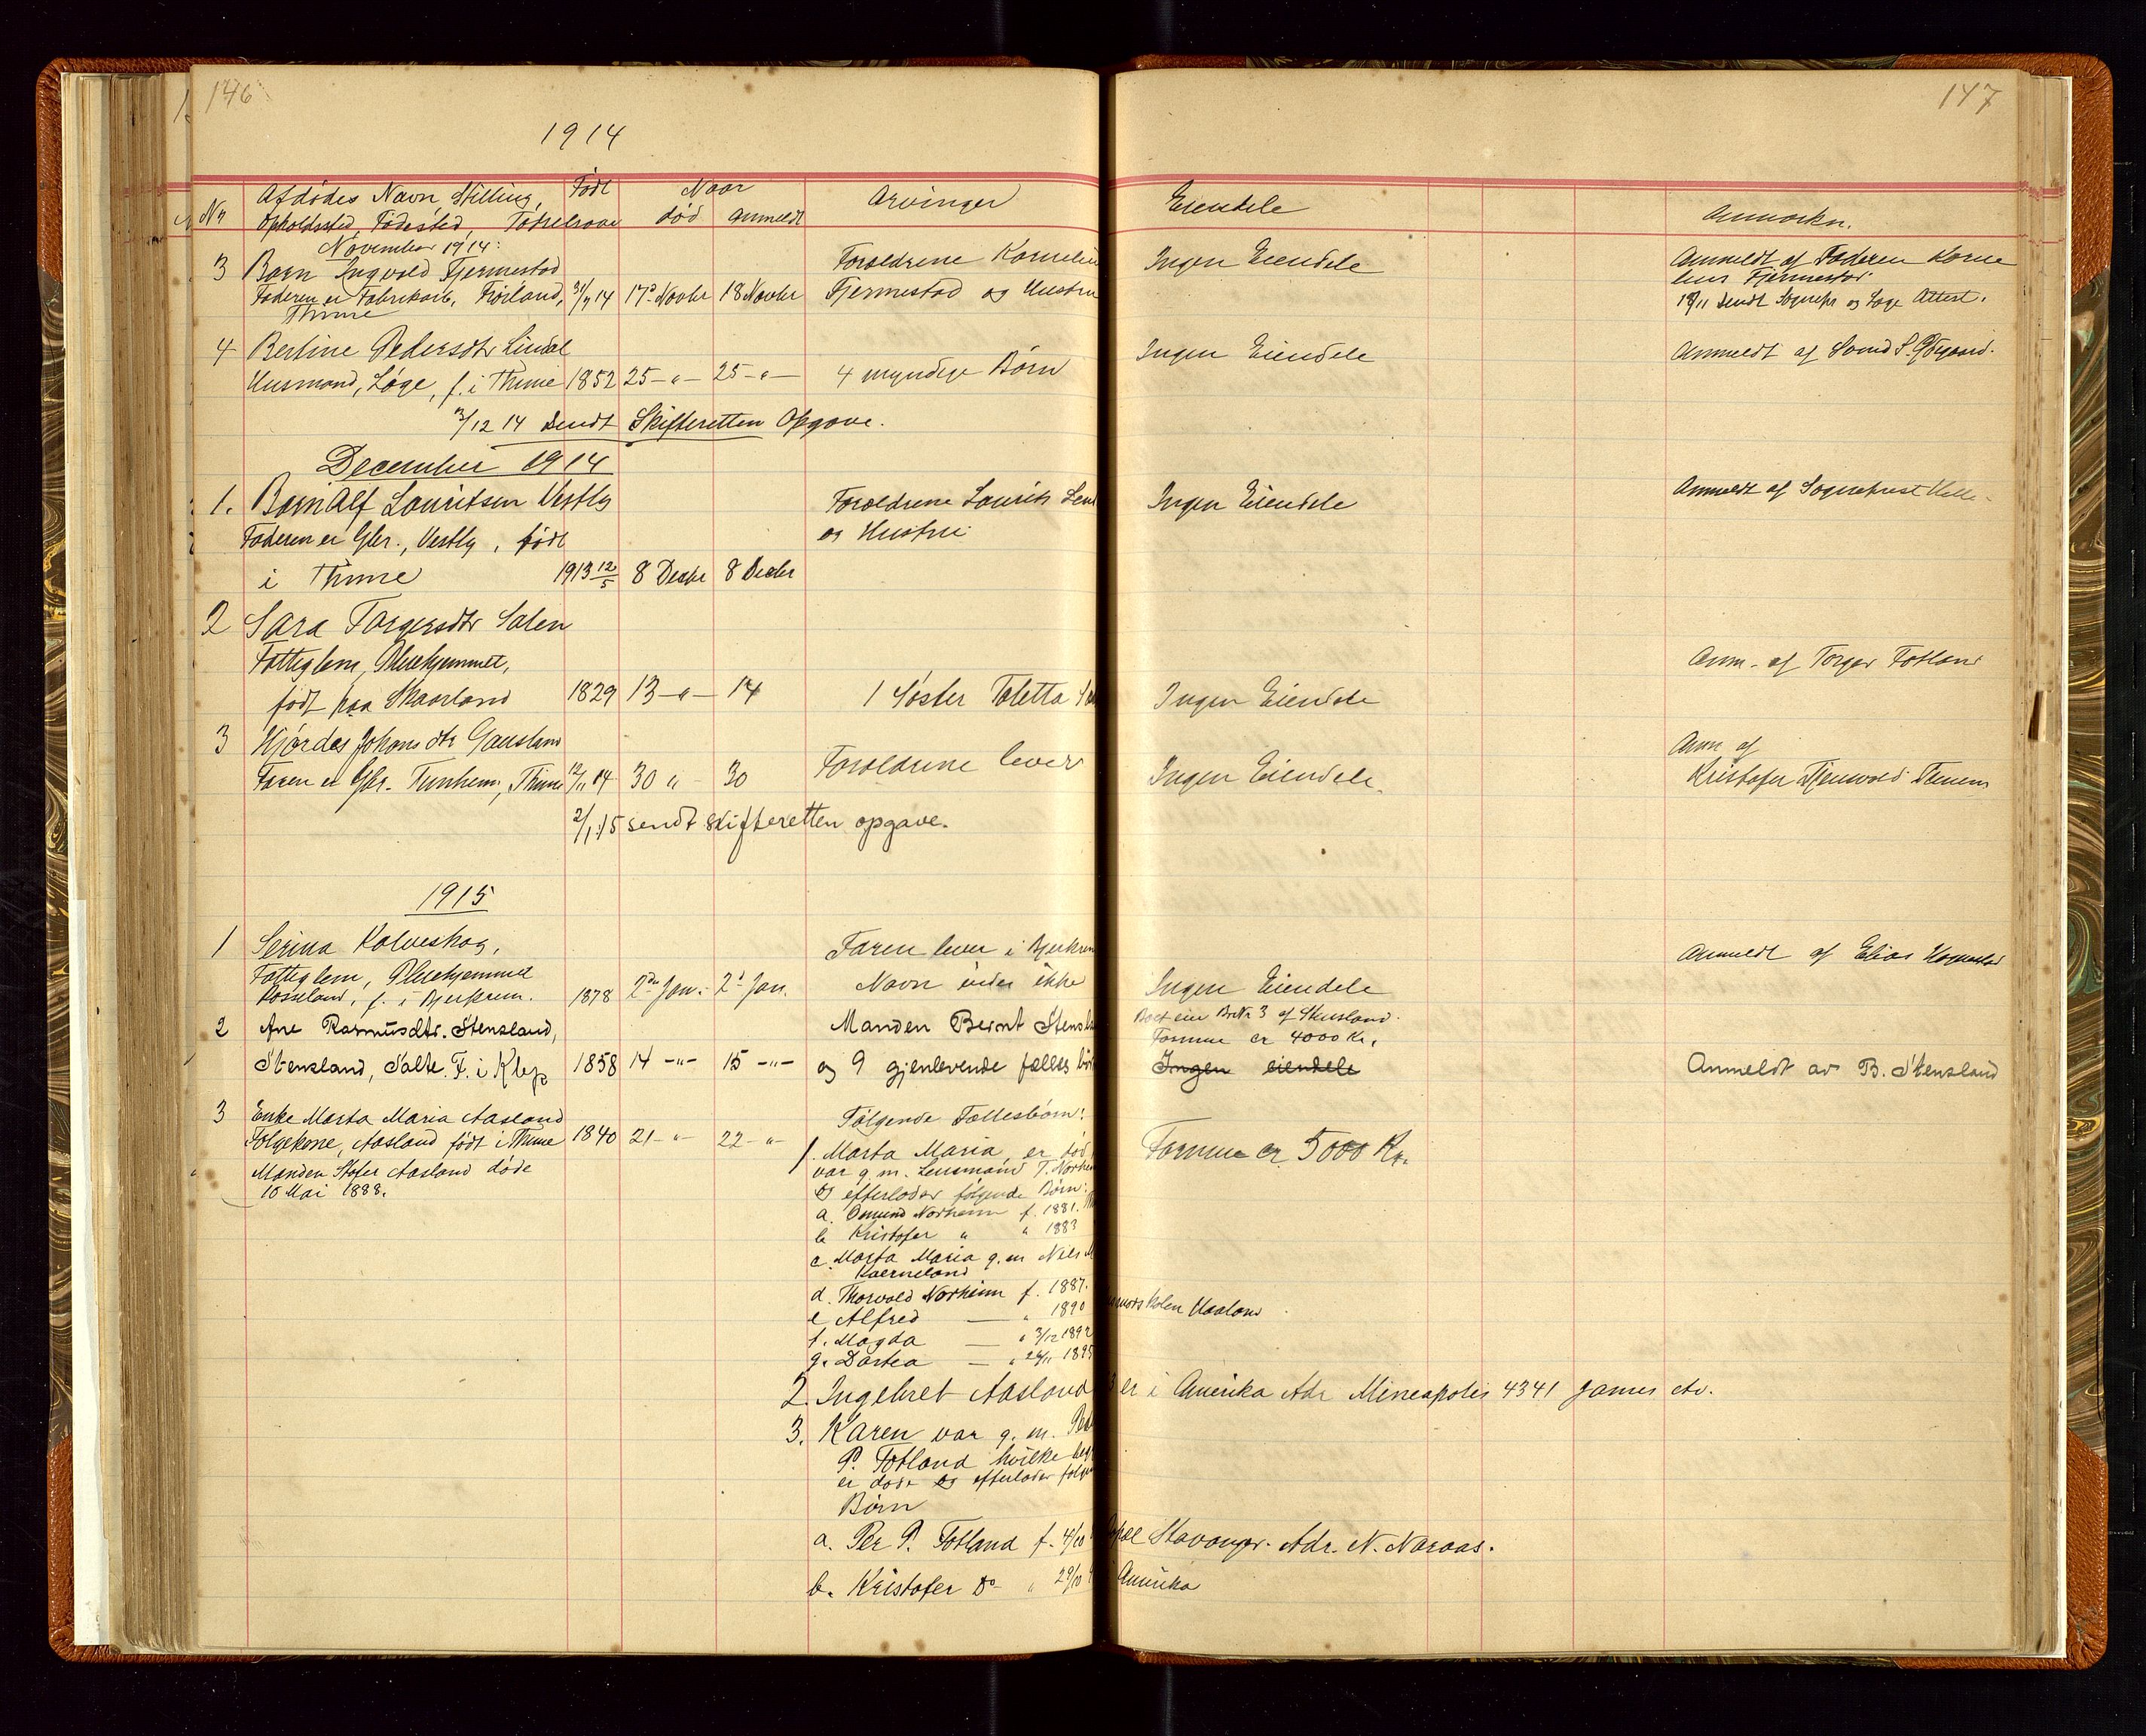 146
1914
Nr
Afdødes Navn, Stilling,
Opholdssted, Fødested,
Født
Naar
død
anmeldt
Arvinger
November 1914:
3 Barn Ingvald Fjermestad
Faderen er Fabrikarb. Frøiland,
Thime
31/7 14
17de Novbr
18 Novbr
Forældrene Kornelius
Fjermestad og Hustru
4 Bertine Pedersdtr Lindal
Husmand, Løge, f. i Thime
1852
25 - " -
25 - " -
4 myndige Børn
/12 14 Sendt Skifteretten Opgave.
December 1914
1. Barn Alf Lauritsen Vestly
Faderen er Gbr., Vestly, født
i Thime
1913 12/5
8 Decbr
8 Decbr
Forældrene Laurits
og Hustru
2 Sara Torgersdtr Salen
Fattiglem, Pleiehjemmet,
født paa Skaarland
1829
13 - " -
14
1 Søster Toletta
3 Hjørdes Johans dtr Gausland
Faren er Gbr. Tunheim, Thime
12/11 14
30 "
30
Forældrene lever
2/1 15 sendt skifteretten opgave.
1915
1 Serina Kalveskog,
Fattiglem, Pleiehjemmet
Rosseland, f. i Bjerkrem.
1878
2den Jan.
2d Jan.
Faren lever i Bjerkrem
Navn vides ikke
2 Ane Rasmusdtr. Stensland,
Stensland, Salte. F. i Klep
1858
14 -"-
15 -"-
Manden Bernt
og 9 gjenlevende fælles
3 Enke Marta Maria Aasland
Folgekone, Aasland født i Thime
Manden Stofer Aasland døde
10 Mai 1888.
1840
21 - " -
22 - " -
Følgende Fællesbørn:
1. Marta Maria, er død,
var g. m. Lensmand T. Norheim
og efterlader følgende Børn:
a. Osmund Norheim f. 1881.
b Kristofer " " 1883
c. Marta Maria g. m Nils
Kverneland
d. Thorvald Norheim f. 1887.
e Alfred — " 1890
f. Magda — " 3/12 1892
g. Dortea — " 26/11 1895
2. Ingebret Aasland
3. Karen var g. m.
P. Fotland hvilke
er døde og efterlader
Børn
a. Per P. Fotland f. 4/10
b. Kristofer do " 29/10
147
Eiendele
Anmærkn.
Ingen Eiendele
Anmeldt af Faderen Korne
lius Fjermestad
18/11 sendt Sognepr og Læge Attest.
Ingen Eiendele
Anmeldt af
Ingen Eiendele
Anmeldt af Sogneprest
Ingen Eiendele
Anm. af Torger Fotland
Ingen Eiendele.
Anm af
Kristofer
Ingen Eiendele
Anmeldt af Elias
Boet eier BrNr 3 af Stensland.
Formue er 4000 Kr.
Ingen eiendele
Anmeldt av B. Stensland
Formue er 5000 Kr.
er i Amerika Adr Mineapolis 4341 James Av.
Stavanger. Adr. N. Naraas.
Amerika